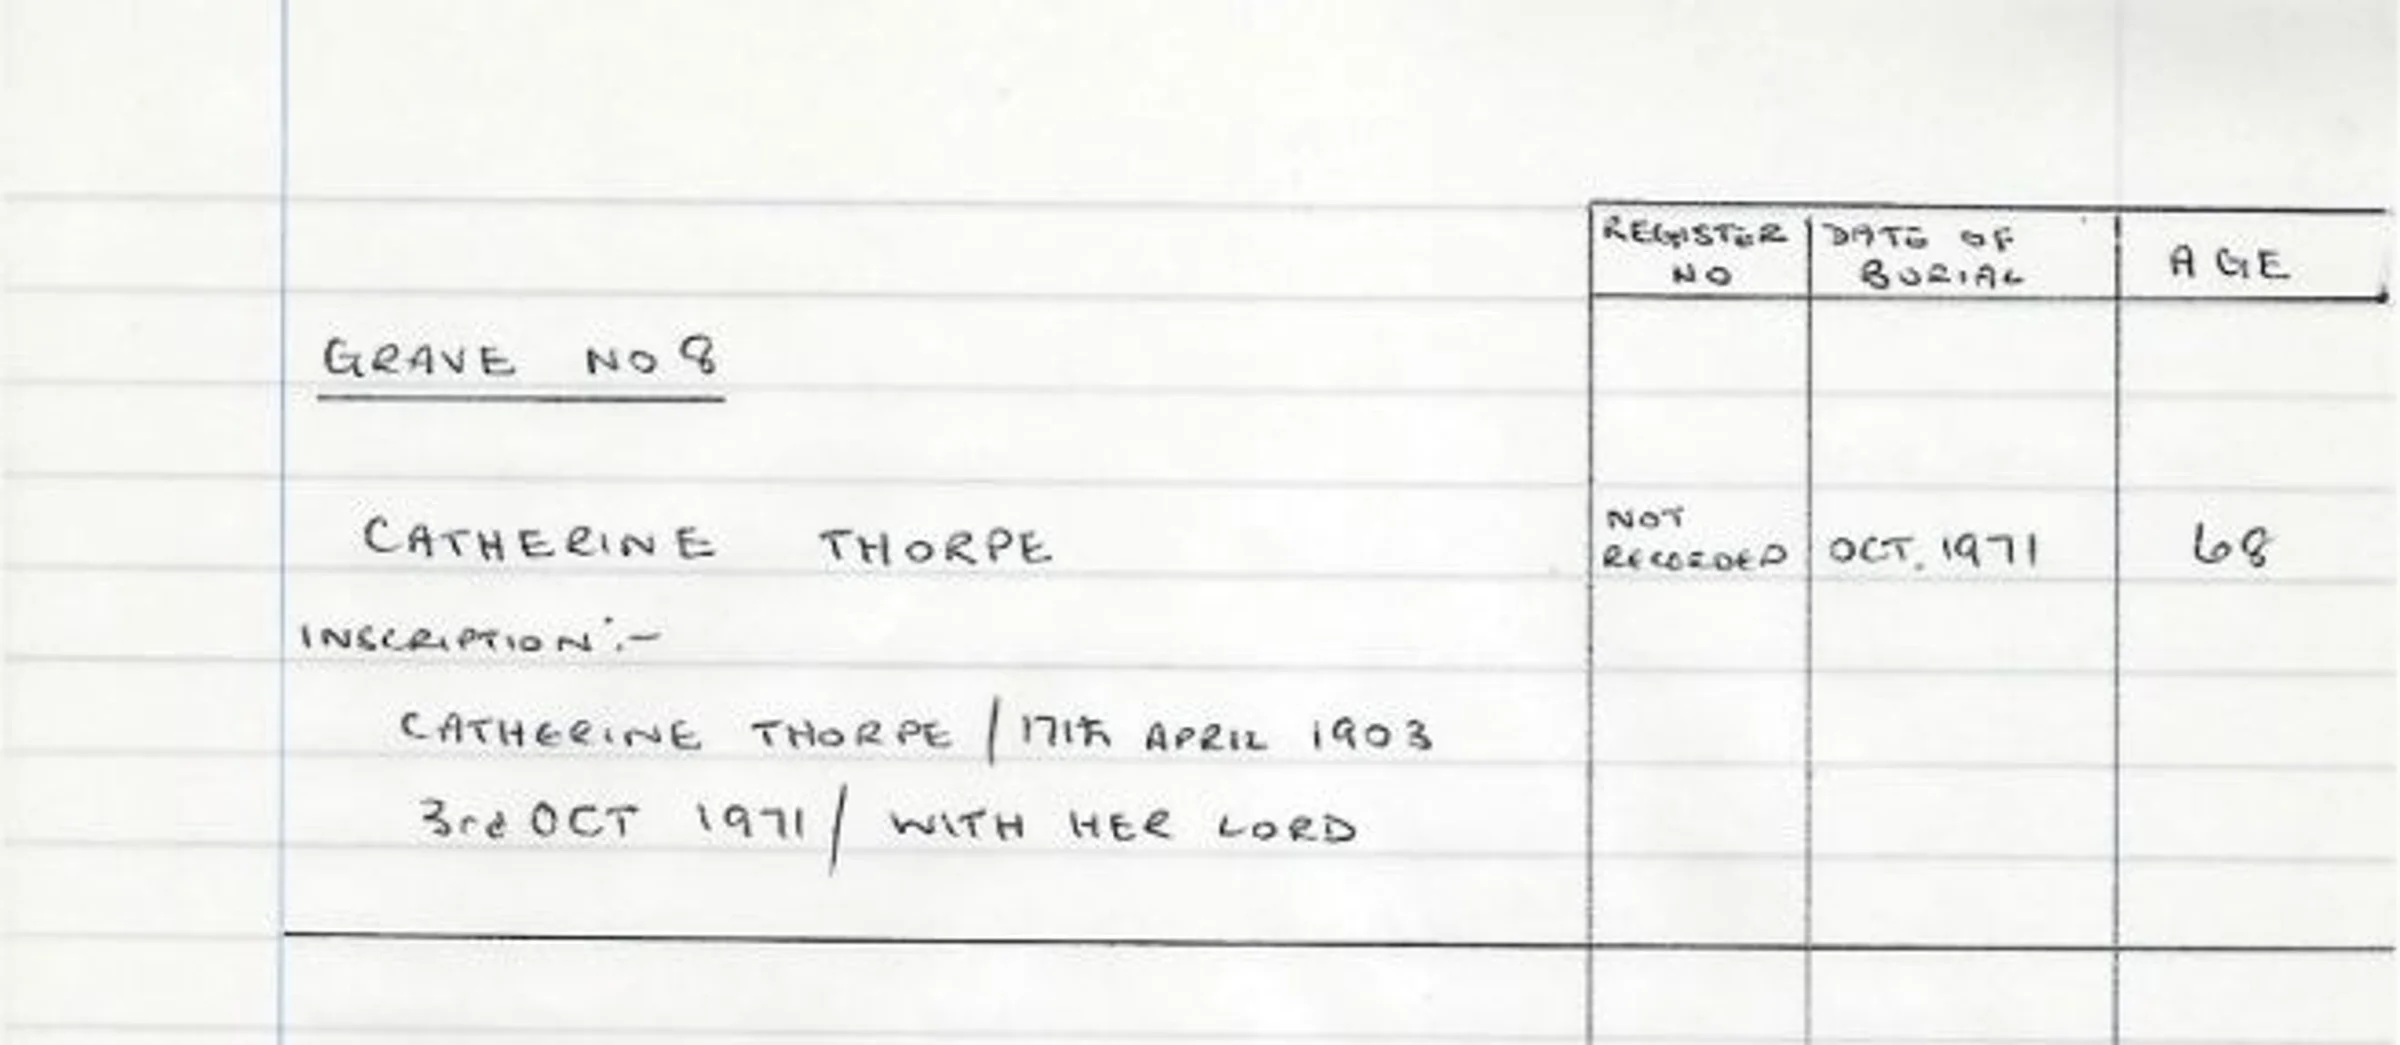 REGISTER NO DATE OF BURIAL AGE
GRAVE NO 8
CATHERINE THORPE NOT RECORDED OCT. 1971 68
INSCRIPTION :-
CATHERINE THORPE / 17th APRIL 1903
3rd OCT 1971 / WITH HER LORD